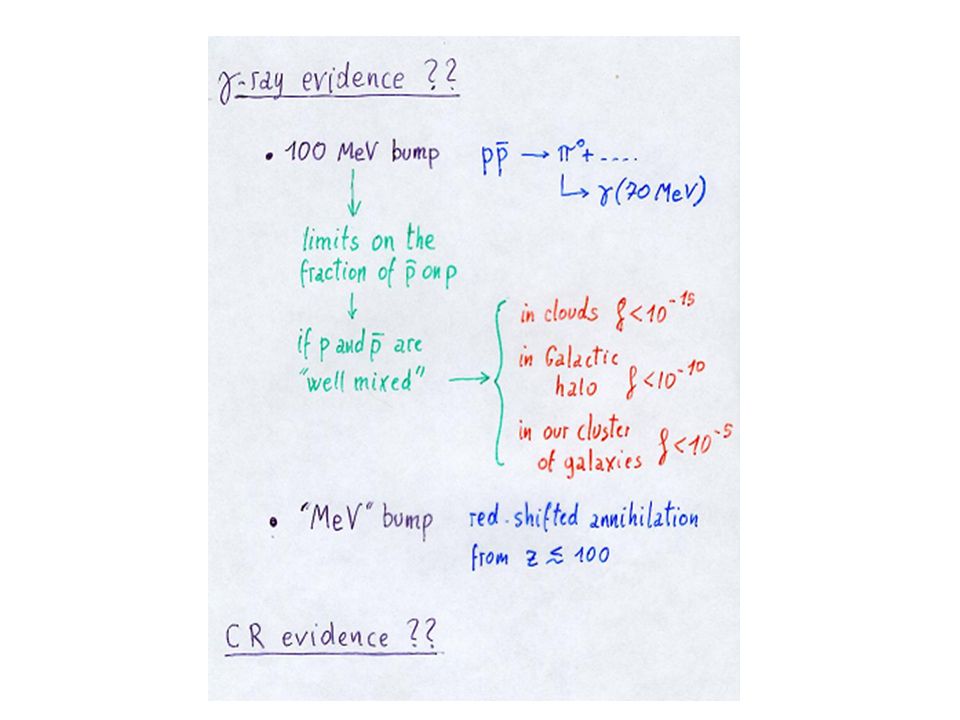 γ-ray evidence ??
• 100 MeV bump pp̄ → π⁰ + ....
↳ γ (70 MeV)
↓
limits on the
fraction of p̄ on p
↓
if p and p̄ are
"well mixed" →
in clouds f < 10⁻¹⁵
in Galactic
halo f < 10⁻¹⁰
in our cluster
of galaxies f < 10⁻⁵
• "MeV" bump red-shifted annihilation
from z ≲ 100
CR evidence ??